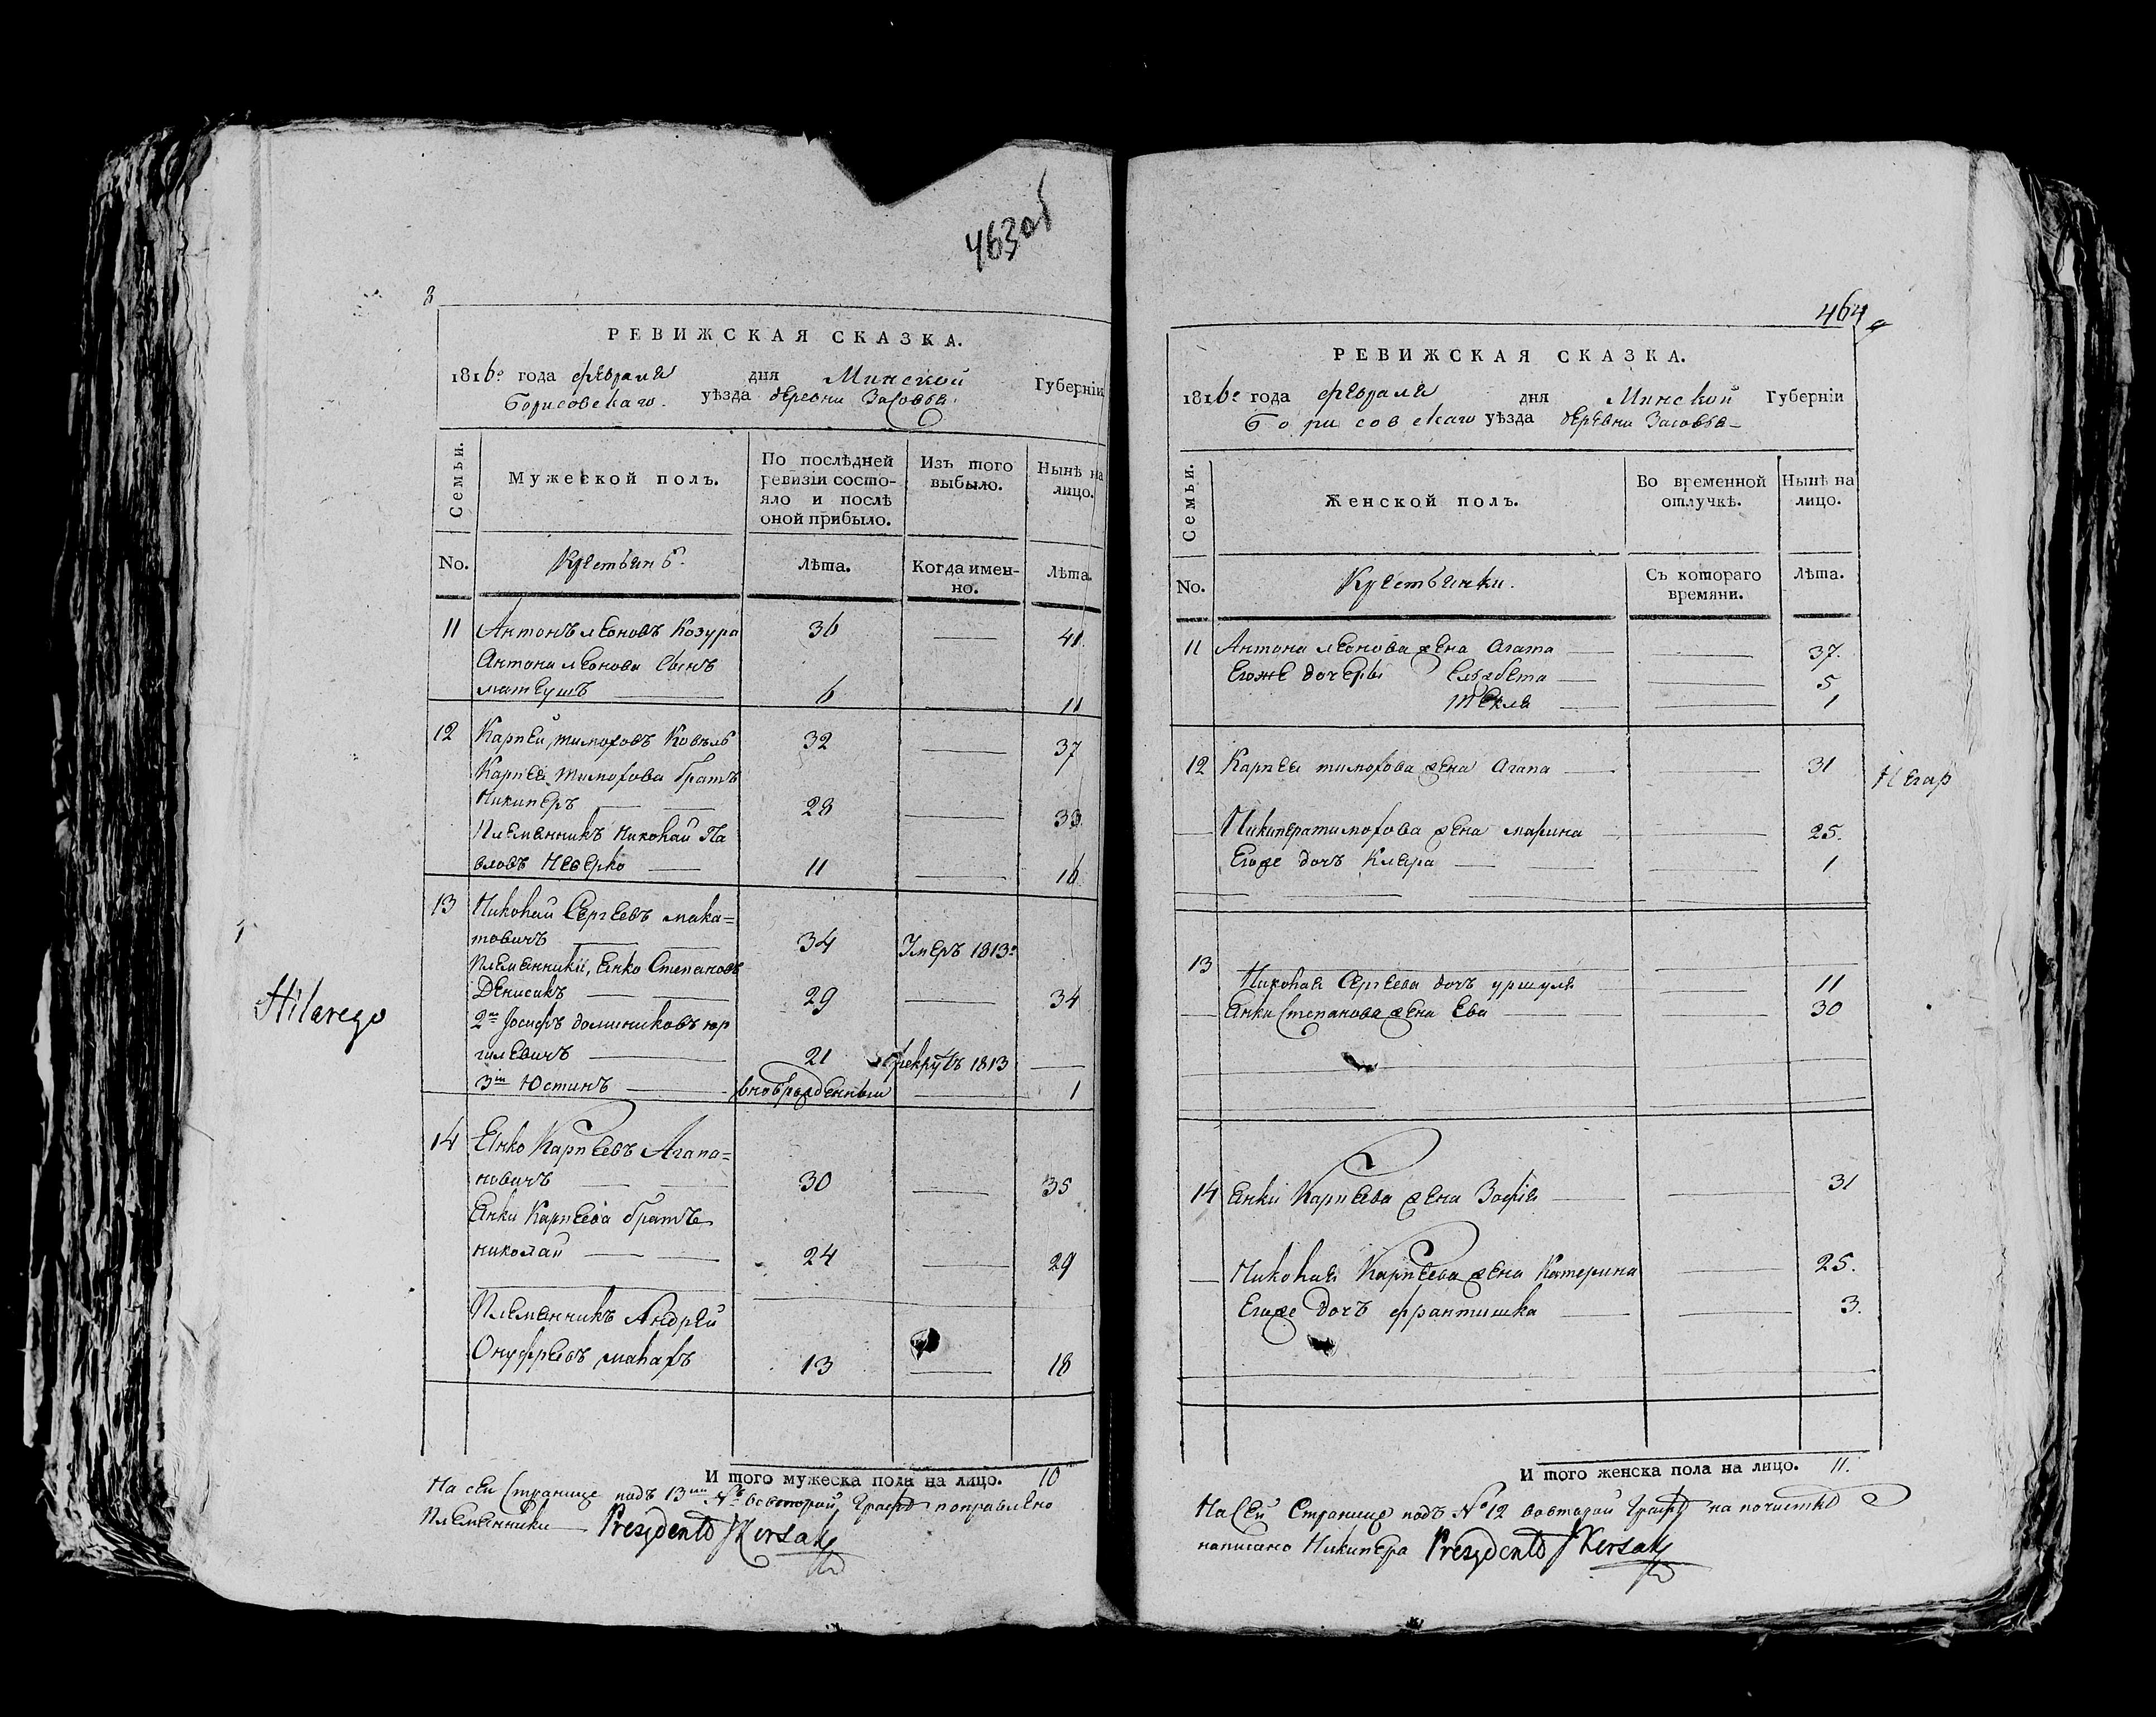 463об
3
РЕВИЖСКАЯ СКАЗКА.
1816го года февраля дня Минской Губерніи
Борисовскаго уѣзда деревни Засовья
Семьи.
Мужеской полъ.
По послѣдней ревизіи состояло и послѣ оной прибыло.
Изъ того выбыло.
Нынѣ на лицо.
No.
Крестьянъ.
Лѣта.
Когда именно.
Лѣта.
11 Антонъ леоновъ Козура 36 — 41
Антона леонова сынъ
матеушъ — 6 — 11
12 Карпей тимофовъ Ковѣль 32 — 37
Карпея тимофова братъ
Никиперъ — — 28 — 33
Племянникъ Николай Па
вловъ Неверко — 11 — 16
13 Николай Сергеевъ мака=
товичъ — — 34 Умеръ 1813го
племянники, Янко Степановъ
Денисикъ — — 29 — 34
2й Іосифъ доминиковъ юр
гилевичъ — 21 рекрутъ 1813 —
3й Юстинъ — вноврожденный — 1
14 Янко Карпеевъ Агапа=
новичъ — — 30 — 35
Янки Карпеева братъ
николай — — 24 — 29
Племянникъ Андрей
Онуфреевъ 13 — 18
И того мужеска пола на лицо. 10
На сей странице подъ 13мъ №ъ вовторой графѣ поправлено
Племянники — Prezydent J Korsak
Hilarego
464
РЕВИЖСКАЯ СКАЗКА.
1816го года февраля дня Минской Губерніи
Борисовскаго уѣзда деревни Засовья —
Семьи.
Женской полъ.
Во временной отлучкѣ.
Нынѣ на лицо.
No.
Крестьянки.
Съ котораго времяни.
Лѣта.
11 Антона леонова жена Агата — — 37.
Егоже дочеры Елжбета — — 5
текля — — 1
12 Карпея тимофова жена Агапа — — 31
— Никипера тимофова жена марина — — 25.
Егоже дочъ Кляра — — — 1
13
Николая Сергеева дочъ уршуля — — 11
— Янки Степанова жена Ева — — — 30
14 Янки Карпеева жена Зофія — — 31
— Николая Карпеева жена Катерина — 25.
Егоже дочъ франтишка — — 3.
И того женска пола на лицо. 11.
На сей Странице подъ №о 12 вовторой графѣ на почисткѣ
написано Никипера Prezydent J Korsak